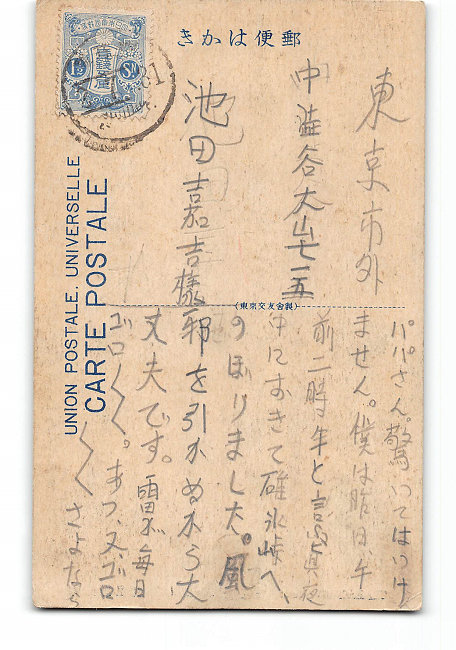 郵便はかき
東京市外
中澁谷大山七一五
池田嘉吉様
UNION POSTALE. UNIVERSELLE
CARTE POSTALE
(東京交友會製)
パパさん。驚いてはいけ
ません。僕は昨日、午
前二時半と言ふ真夜
中におきて碓氷峠へ
のぼりました。風
邪を引かぬから大
丈夫です。雷が毎日
ゴロ〱〱。あつ、又ゴロ
〱〱 さよなら
1½ Sn